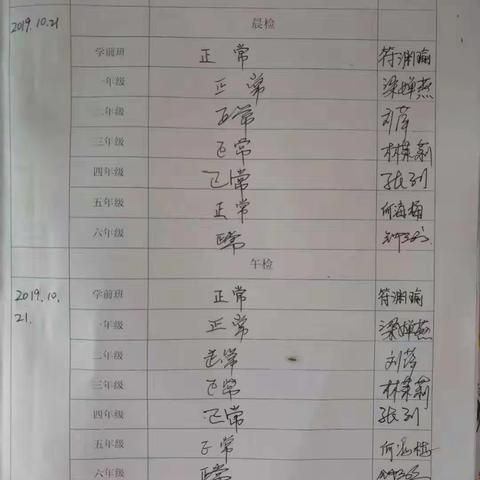 2019.10.21 晨检
学前班 正常 符渊瑜
一年级 正常 梁婵燕
二年级 正常 刘萍
三年级 正常 林菜莉
四年级 正常 张列
五年级 正常 何海梅
六年级 正常
午检
2019.10. 学前班 正常 符渊瑜
21. 一年级 正常 梁婵燕
二年级 正常 刘萍
三年级 正常 林菜莉
四年级 正常 张列
五年级 正常 何海梅
六年级 正常